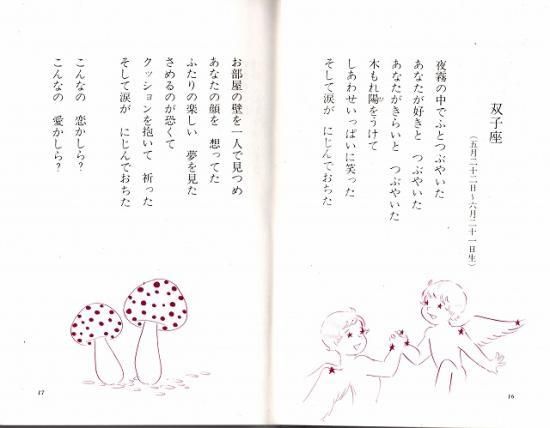 双子座
(五月二十二日~六月二十一日生)
夜霧の中でふとつぶやいた
あなたが好きと つぶやいた
あなたがきらいと つぶやいた
木もれ陽をうけて
しあわせいっぱいに笑った
そして涙が にじんでおちた
16
お部屋の壁を一人で見つめ
あなたの顔を 想ってた
ふたりの楽しい 夢を見た
さめるのが恐くて
クッションを抱いて 祈った
そして涙が にじんでおちた
こんなの 恋かしら?
こんなの 愛かしら?
17